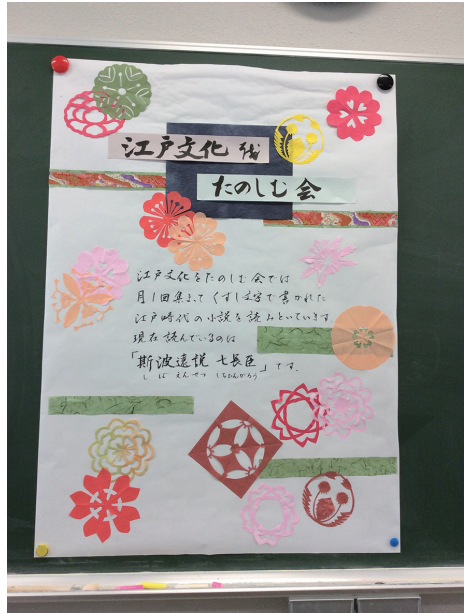 江戸文化を
たのしむ会
江戸文化をたのしむ会では
月1回集まって くずし文字で書かれた
江戸時代の小説を読みといています
現在読んでいるのは
「斯波遠説 七長臣」です。
しばえんせつ しちちんがろう